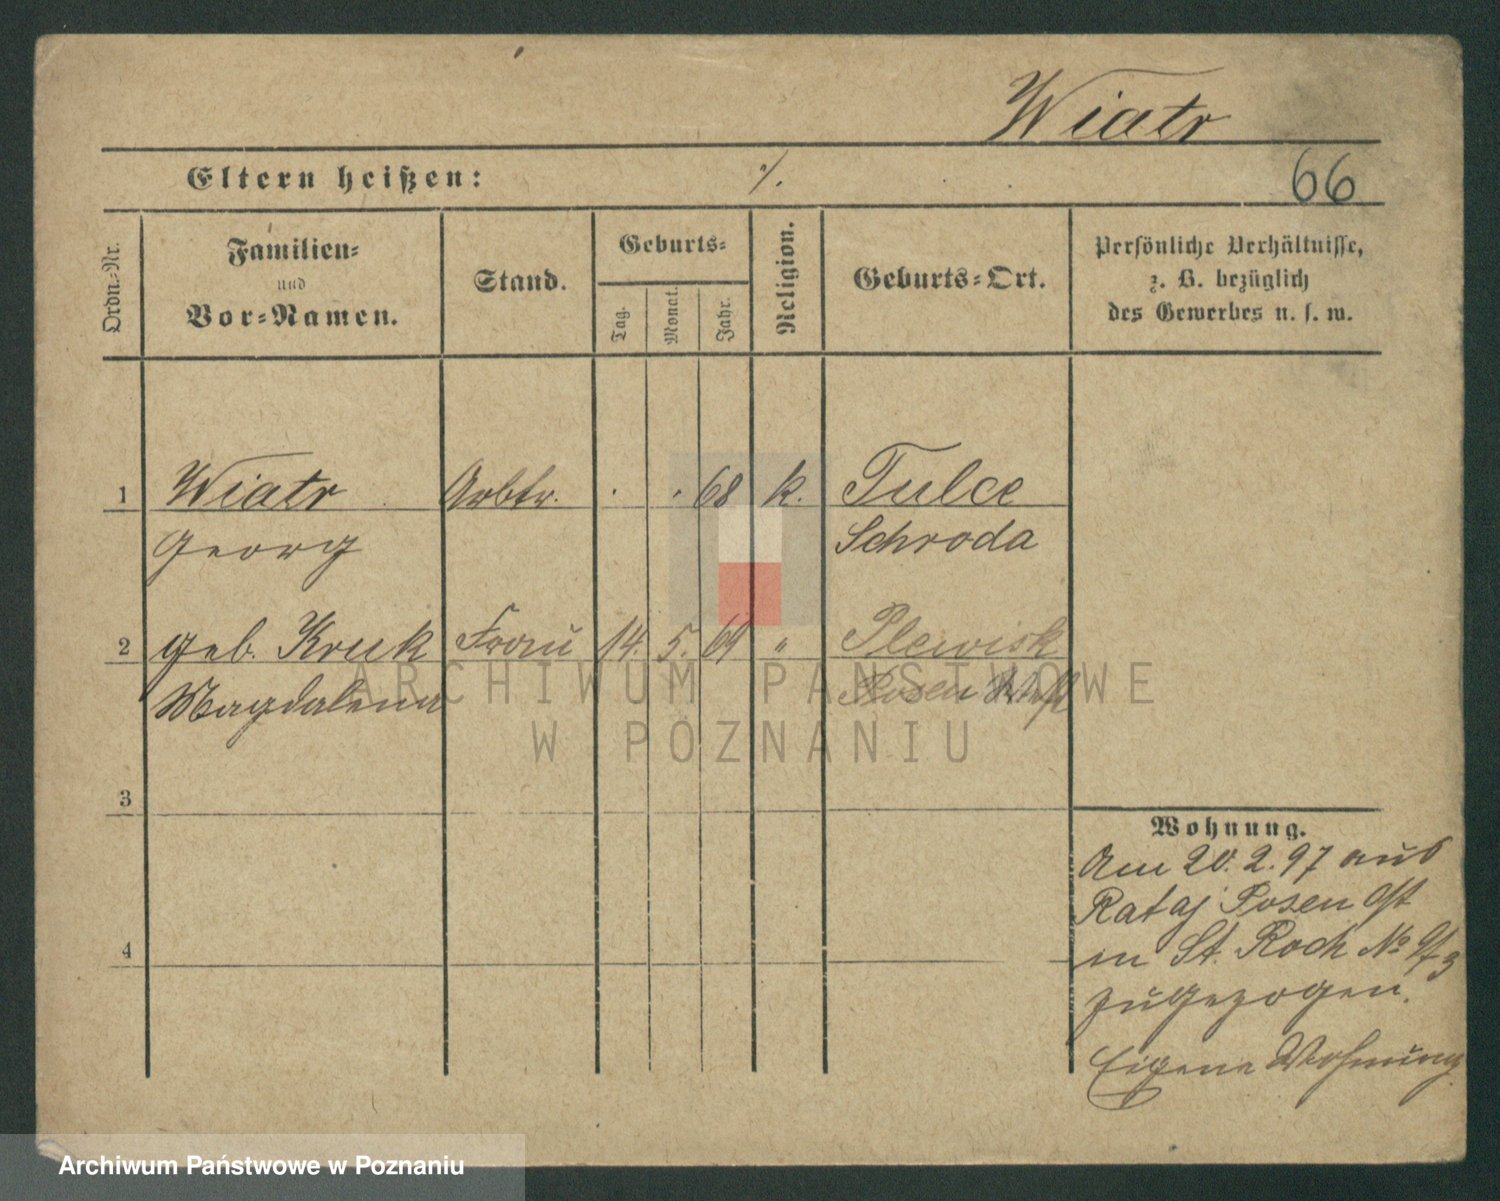 Wiatr
Eltern heißen: ⁒. 66
Ordn.-Nr. Familien- und Vor-Namen. Stand. Geburts- Tag. Monat. Jahr. Religion. Geburts-Ort. Persönliche Verhältnisse, z. B. bezüglich des Gewerbes u. s. w.
1 Wiatr Arbtr. . . 68 k. Tulce
Georg Schroda
2 geb. Kruk Frau 14. 5. 69 " Plewisk
Magdalena Posen West
3
4
Wohnung.
Am 20.2.97 aus
Rataj Posen Ost
in St. Roch No
zugezogen.
Eigene Wohnung
ARCHIWUM PAŃSTWOWE
W POZNANIU
Archiwum Państwowe w Poznaniu